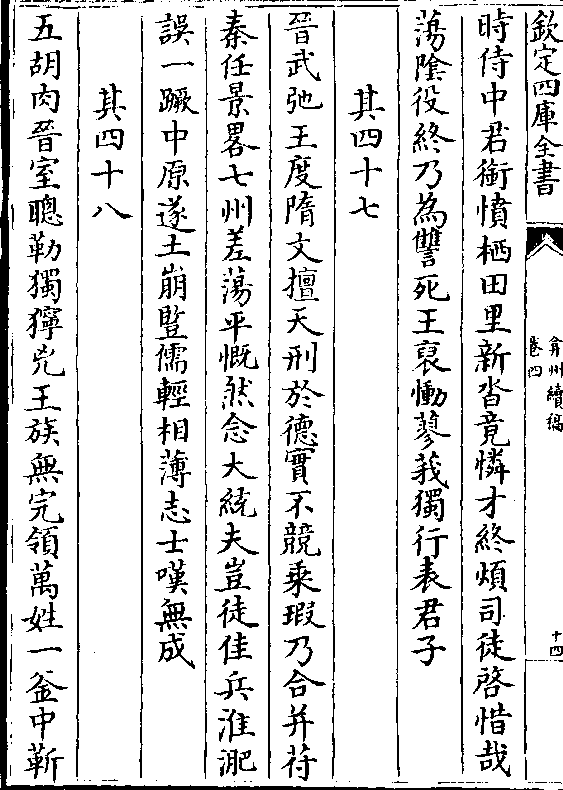 欽定四庫全書
弇州續稿
卷四
十四
時侍中君銜憤栖田里新沓竟憐才終煩司徒啓惜哉
蕩陰役終乃為讐死王裒慟蓼莪獨行表君子
其四十七
晉武弛王度隋文擅天刑於德實不競乗瑕乃合并苻
秦任景畧七州差蕩平慨然念大統夫豈徒佳兵淮淝
誤一蹶中原遂土崩竪儒輕相薄志士嘆無成
其四十八
五胡肉晉室聰勒獨獰兇王族無完領萬姓一釡中靳